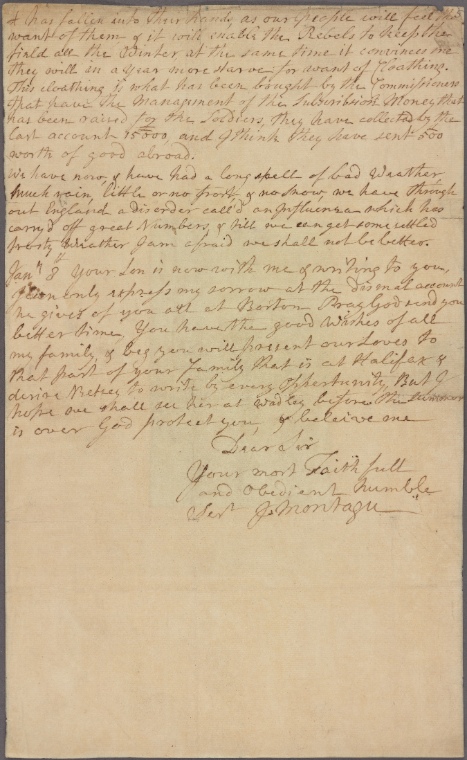 & has fallen into their hands as our People will feel the
want of them & it will enable the Rebels to keep the
field all the Winter at the same time it convinces me
they will in a year more starve for want of Cloathing.
This cloathing is what has been bought by the Commissioners
that have the Management of the Subscribtion Money that
has been raised for the Soldiers, they have collected by the
last account 15500, and I think they have sent
worth of good abroad.
We have now & have had a long spell of bad Weather,
Much rain little or no frost & no snow we have through
out England a disorder call'd an Influenza which has
carry'd off great Numbers, & till we can get some settled
frosty Weather I am afraid we shall not be better.
Jany 8th Your Son is now with me & writing to you,
I can only express my sorrow at the dismal account
he gives of you all at Boston Pray God send you
better time, You have the good Wishes of all
my family, & beg you will present our Loves to
that part of your family that is at Halifax &
desire Betsey to write by every Oppertunity, But I
hope we shall see her at before the summer
is over God protect you & beleive me
Dear Sir
Your most Faithfull
and Obedient humble
Servt Js Montagu